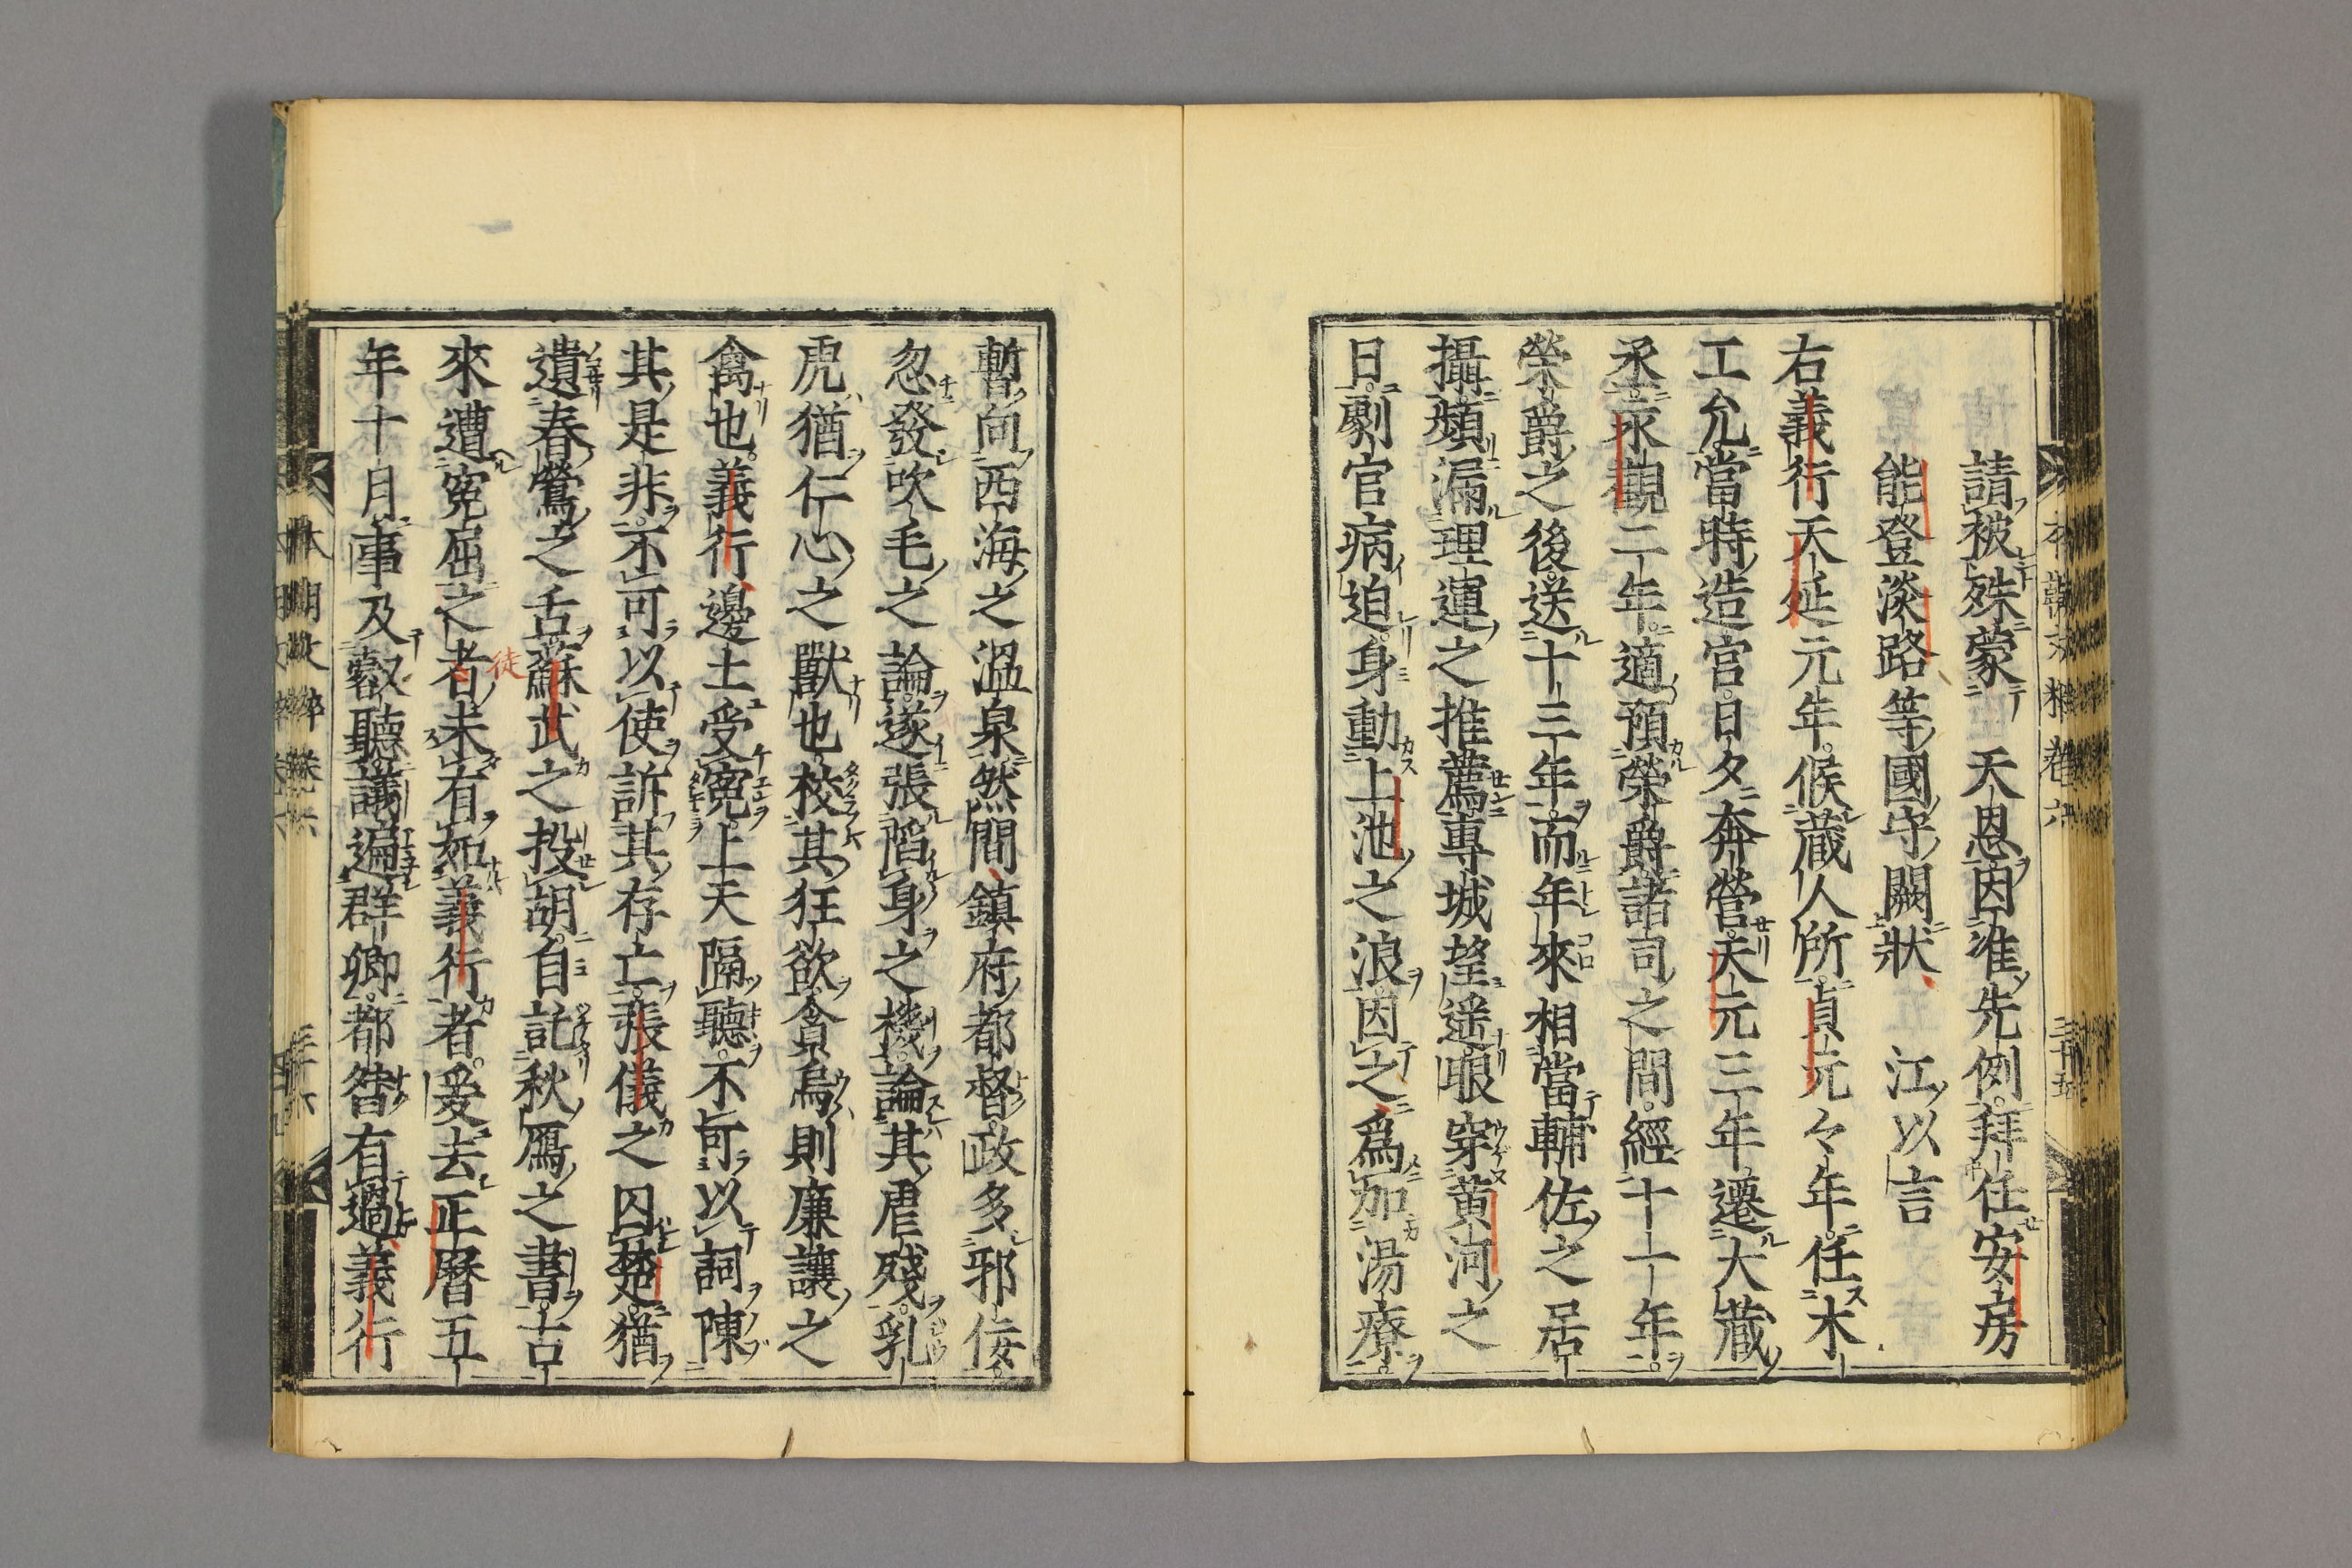 請被殊蒙 天恩因准先例拜任安房
能登淡路等國守闕狀 江以言
右義行天延元年候藏人所貞元々年任木
工允當時造宮日夕奔營天元三年遷大藏
丞永觀二年適預榮爵諸司之間經十一年
榮爵之後送十三年而年來相當輔佐之居
攝頻漏理運之推薦專城望遥眼穿黄河之
日劇官病迫身動上池之浪因之爲加湯療
暫向西海之溫泉然間鎮府都督政多邪佞
忽發吹毛之論遂張陷身之機論其虐殘乳
虎猶仁心之獸也校其狂欲貪烏則廉讓之
禽也義行邊土受寃上天隔聽不可以詞陳
其是非不可以使訴其存亡張儀之囚楚猶
遺春鶯之舌蘇武之投胡自託秋鴈之書古
來遭寃屈之者未有如義行者爰去正曆五
徒
年十月事及叡聽議遍群卿都督有過義行
本朝文粹卷六
三十五
本朝文粹卷六
三十六